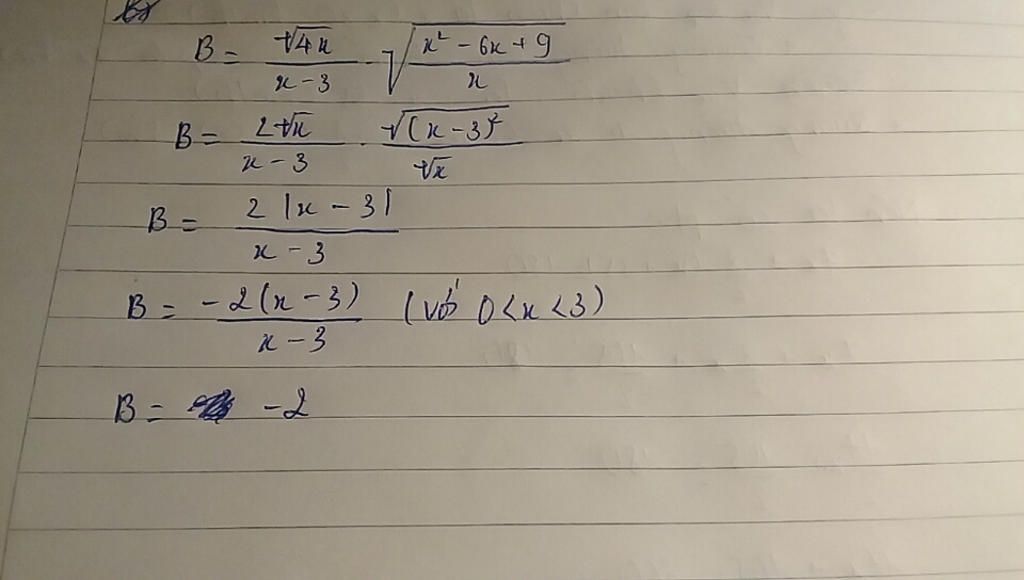 b)
B = \frac{\sqrt{4x}}{x-3} \cdot \sqrt{\frac{x^2 - 6x + 9}{x}}
B = \frac{2\sqrt{x}}{x-3} \cdot \frac{\sqrt{(x-3)^2}}{\sqrt{x}}
B = \frac{2|x-3|}{x-3}
B = \frac{-2(x-3)}{x-3} (với 0<x<3)
B = -2